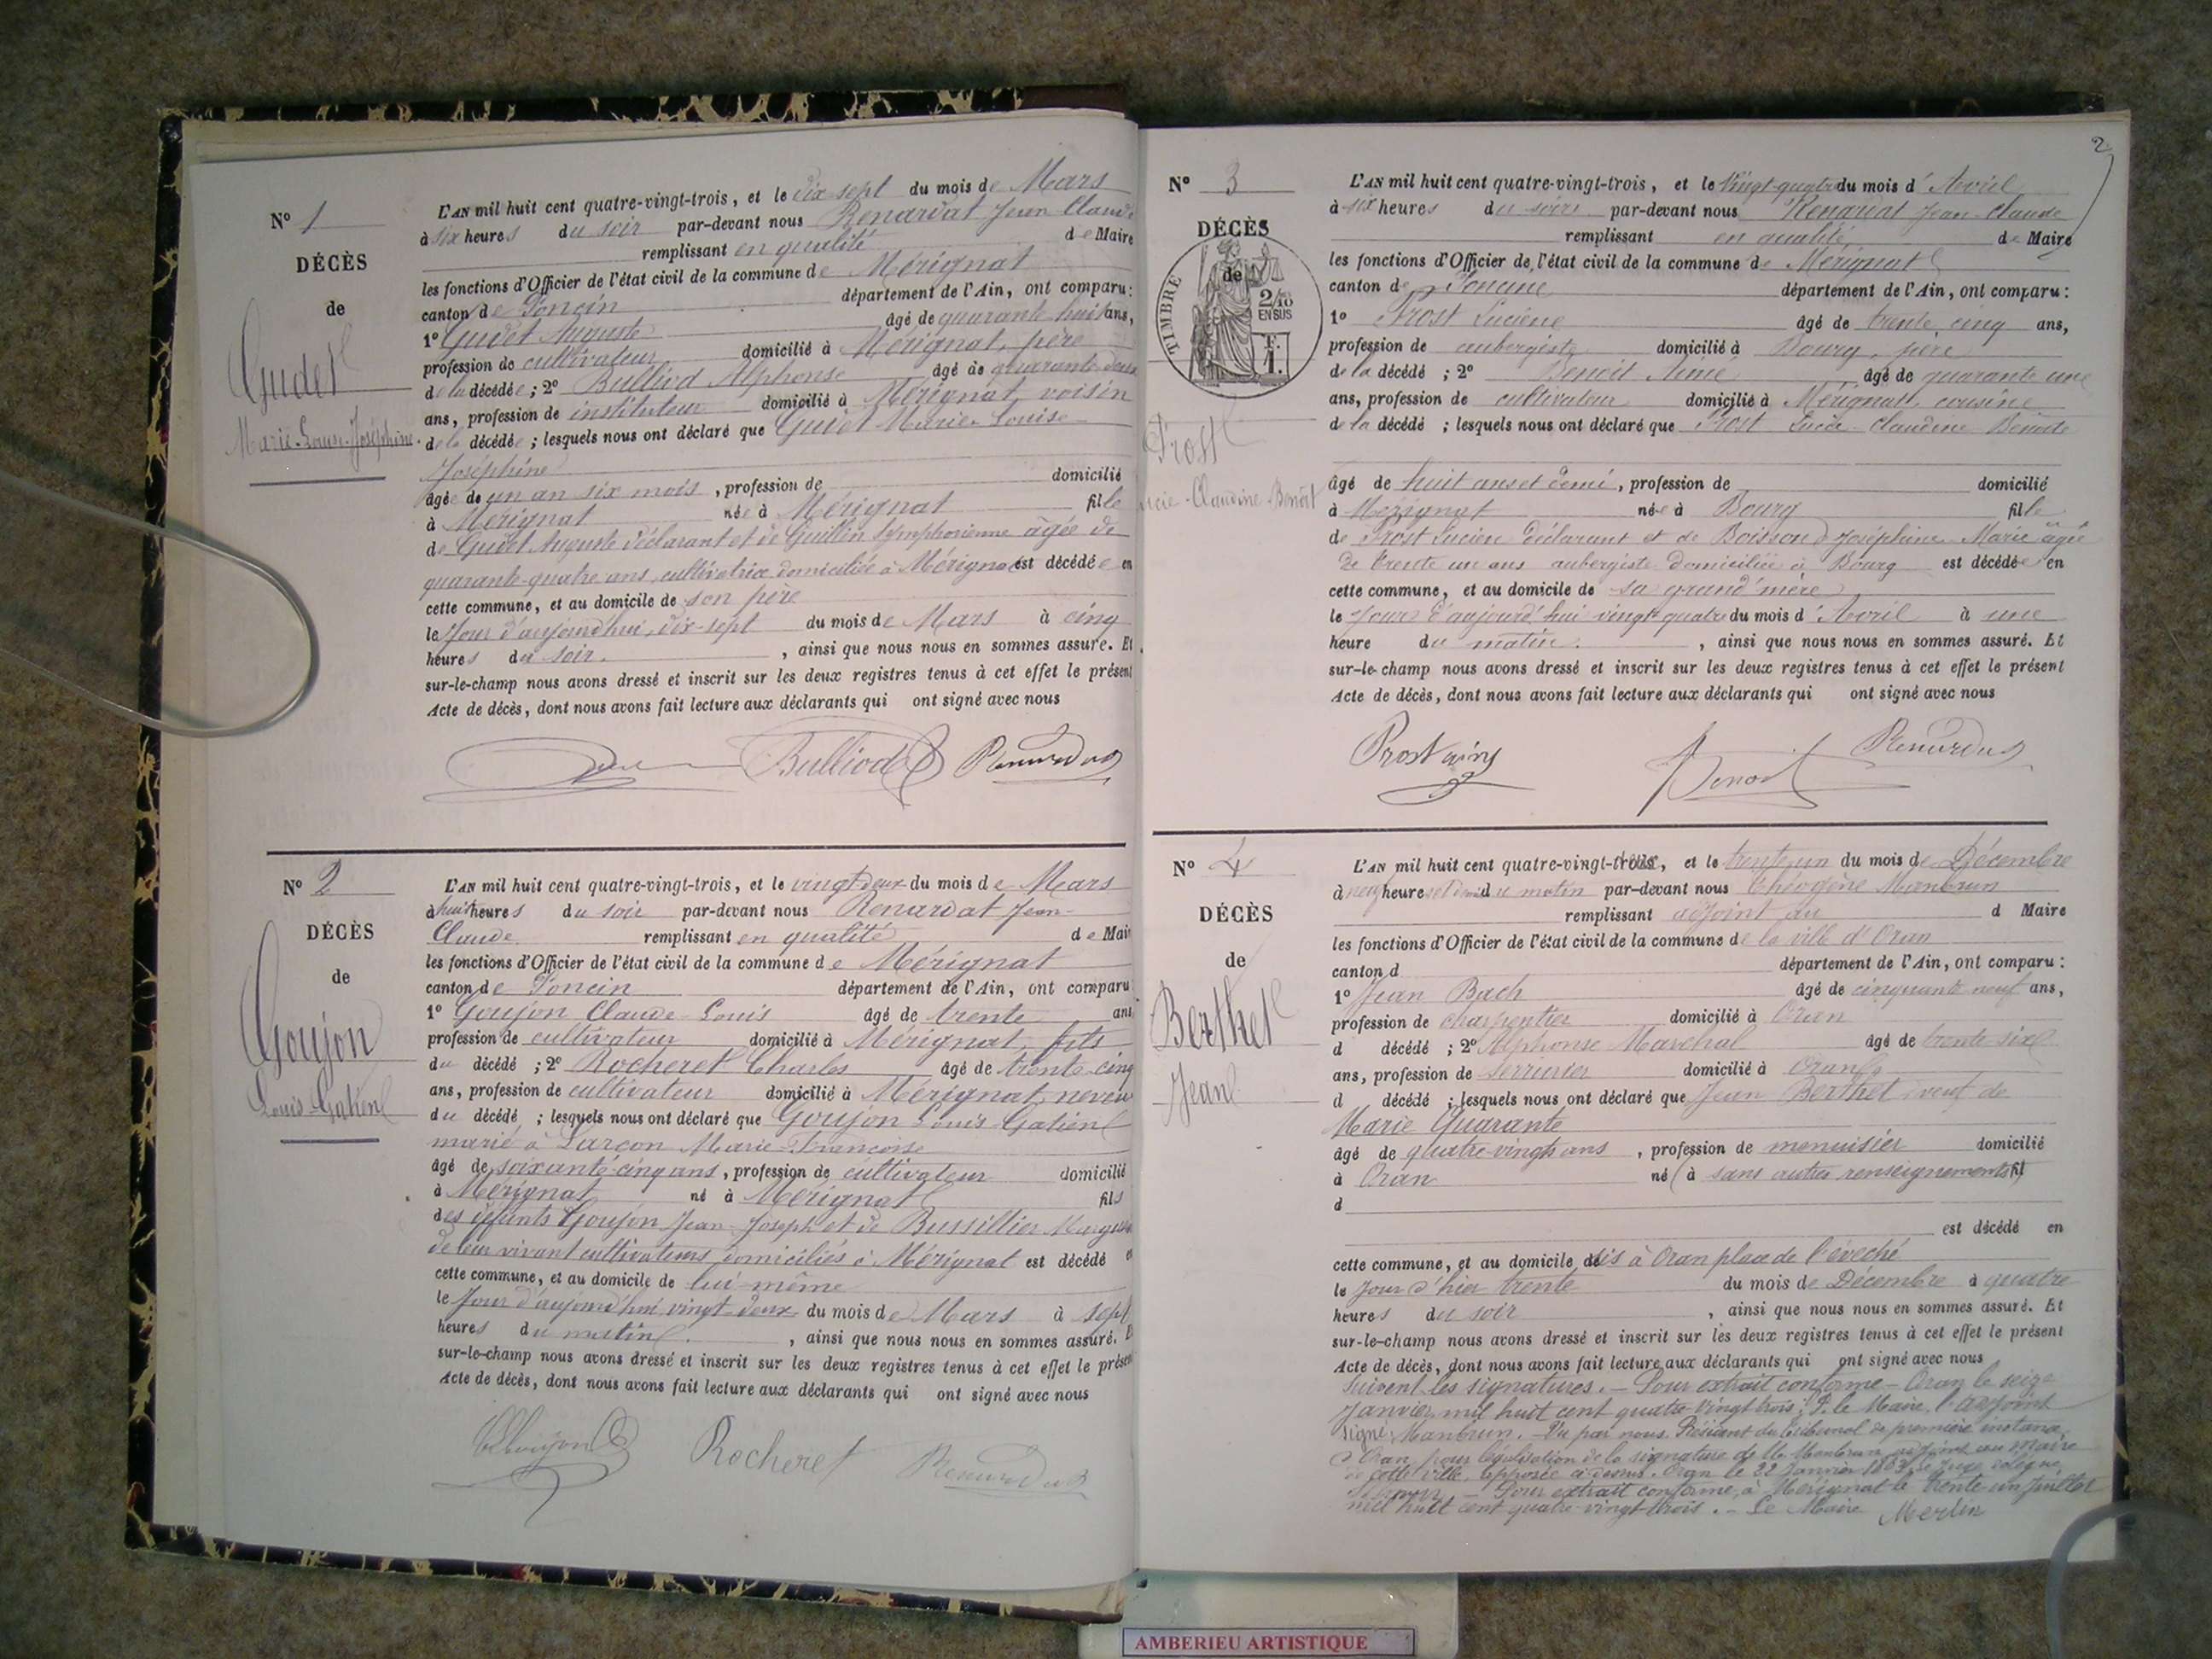 N° 1
DÉCÈS
de
Gudet
Marie-Louise-Joséphine
L'AN mil huit cent quatre-vingt-trois, et le dix-sept du mois de Mars
à six heures du soir par-devant nous Renardat Jean Claude
remplissant en qualité de Maire
les fonctions d'Officier de l'état civil de la commune de Mérignat
canton de Poncin département de l'Ain, ont comparu :
1° Gudet Auguste âgé de quarante huit ans,
profession de cultivateur domicilié à Mérignat, père
de la décédée ; 2° Bulliod Alphonse âgé de quarante deux
ans, profession de instituteur domicilié à Mérignat, voisin
de la décédée ; lesquels nous ont déclaré que Gudet Marie-Louise
Joséphine
âgée de un an six mois, profession de domicilié
à Mérignat née à Mérignat fille
de Gudet Auguste déclarant et de Guillin Symphorienne âgée de
quarante-quatre ans, cultivatrice domiciliée à Mérignat est décédée en
cette commune, et au domicile de son père
le jour d'aujourd'hui, dix-sept du mois de Mars à cinq
heures du soir. , ainsi que nous nous en sommes assuré. Et
sur-le-champ nous avons dressé et inscrit sur les deux registres tenus à cet effet le présent
Acte de décès, dont nous avons fait lecture aux déclarants qui ont signé avec nous
Bulliod Renardat
N° 2
DÉCÈS
de
Goujon
Louis Gatien
L'AN mil huit cent quatre-vingt-trois, et le vingt-deux du mois de Mars
à huit heures du soir par-devant nous Renardat Jean-
Claude remplissant en qualité de Mai
les fonctions d'Officier de l'état civil de la commune de Mérignat
canton de Poncin département de l'Ain, ont comparu
1° Goujon Claude Louis âgé de trente ans
profession de cultivateur domicilié à Mérignat, fils
du décédé ; 2° Rocheret Charles âgé de trente-cinq
ans, profession de cultivateur domicilié à Mérignat, neveu
du décédé ; lesquels nous ont déclaré que Goujon Louis Gatien
marié à Larçon Marie-Françoise
âgé de soixante-cinq ans, profession de cultivateur domicilié
à Mérignat né à Mérignat fils
des défunts Goujon Jean-Joseph et de Bussillier
de leur vivant cultivateurs domiciliés à Mérignat est décédé
cette commune, et au domicile de lui-même
le jour d'aujourd'hui vingt-deux du mois de Mars à sept
heures du matin. , ainsi que nous nous en sommes assuré.
sur-le-champ nous avons dressé et inscrit sur les deux registres tenus à cet effet le présent
Acte de décès, dont nous avons fait lecture aux déclarants qui ont signé avec nous
Goujon Rocheret Renardat
2
N° 3
DÉCÈS
de
TIMBRE
2/10
EN SUS
Prost
Claudine-Benoit
L'AN mil huit cent quatre-vingt-trois, et le vingt-quatre du mois d'Avril
à six heures du soir par-devant nous Renardat Jean Claude
remplissant en qualité de Maire
les fonctions d'Officier de l'état civil de la commune de Mérignat
canton de Poncin département de l'Ain, ont comparu :
1° Prost Lucien âgé de trente cinq ans,
profession de aubergiste domicilié à Bourg, père
de la décédé ; 2° Benoit Aimé âgé de quarante une
ans, profession de cultivateur domicilié à Mérignat, cousin
de la décédé ; lesquels nous ont déclaré que Prost Lucie Claudine Benoite
âgé de huit ans et demi, profession de domicilié
à Mérignat née à Bourg fille
de Prost Lucien déclarant et de Boisson Joséphine Marie âgée
de trente un ans aubergiste domiciliée à Bourg est décédée en
cette commune, et au domicile de sa grand'mère
le jour d'aujourd'hui vingt-quatre du mois d'Avril à une
heure du matin. , ainsi que nous nous en sommes assuré. Et
sur-le-champ nous avons dressé et inscrit sur les deux registres tenus à cet effet le présent
Acte de décès, dont nous avons fait lecture aux déclarants qui ont signé avec nous
Prost Benoit Renardat
N° 4
DÉCÈS
de
Berthet
Jean
L'AN mil huit cent quatre-vingt-deux, et le trente-un du mois de Décembre
à neuf heures et demi du matin par-devant nous Théogène Manbrun
remplissant adjoint au d Maire
les fonctions d'Officier de l'état civil de la commune de la ville d'Oran
canton d département de l'Ain, ont comparu :
1° Jean Bach âgé de cinquante neuf ans,
profession de charpentier domicilié à Oran
d décédé ; 2° Alphonse Marchal âgé de trente-six
ans, profession de serrurier domicilié à Oran
d décédé ; lesquels nous ont déclaré que Jean Berthet veuf de
Marie Quarante
âgé de quatre-vingts ans, profession de menuisier domicilié
à Oran né à sans autres renseignements fil
d
est décédé en
cette commune, et au domicile sis à Oran place de l'évêché
le jour d'hier trente du mois de Décembre à quatre
heures du soir , ainsi que nous nous en sommes assuré. Et
sur-le-champ nous avons dressé et inscrit sur les deux registres tenus à cet effet le présent
Acte de décès, dont nous avons fait lecture aux déclarants qui ont signé avec nous
Suivent les signatures. - Pour extrait conforme - Oran le seize
Janvier mil huit cent quatre vingt trois. P. le Maire, l'adjoint
signé: Manbrun. - Vu par nous, Président du tribunal de première instance
d'Oran, pour légalisation de la signature de M. Manbrun adjoint au maire
de cette ville, apposée ci-dessus. Oran le 22 Janvier 1883, le Juge délégué
- Pour extrait conforme, à Mérignat le trente-un Juillet
mil huit cent quatre-vingt-trois. - Le Maire Merlin
AMBERIEU ARTISTIQUE